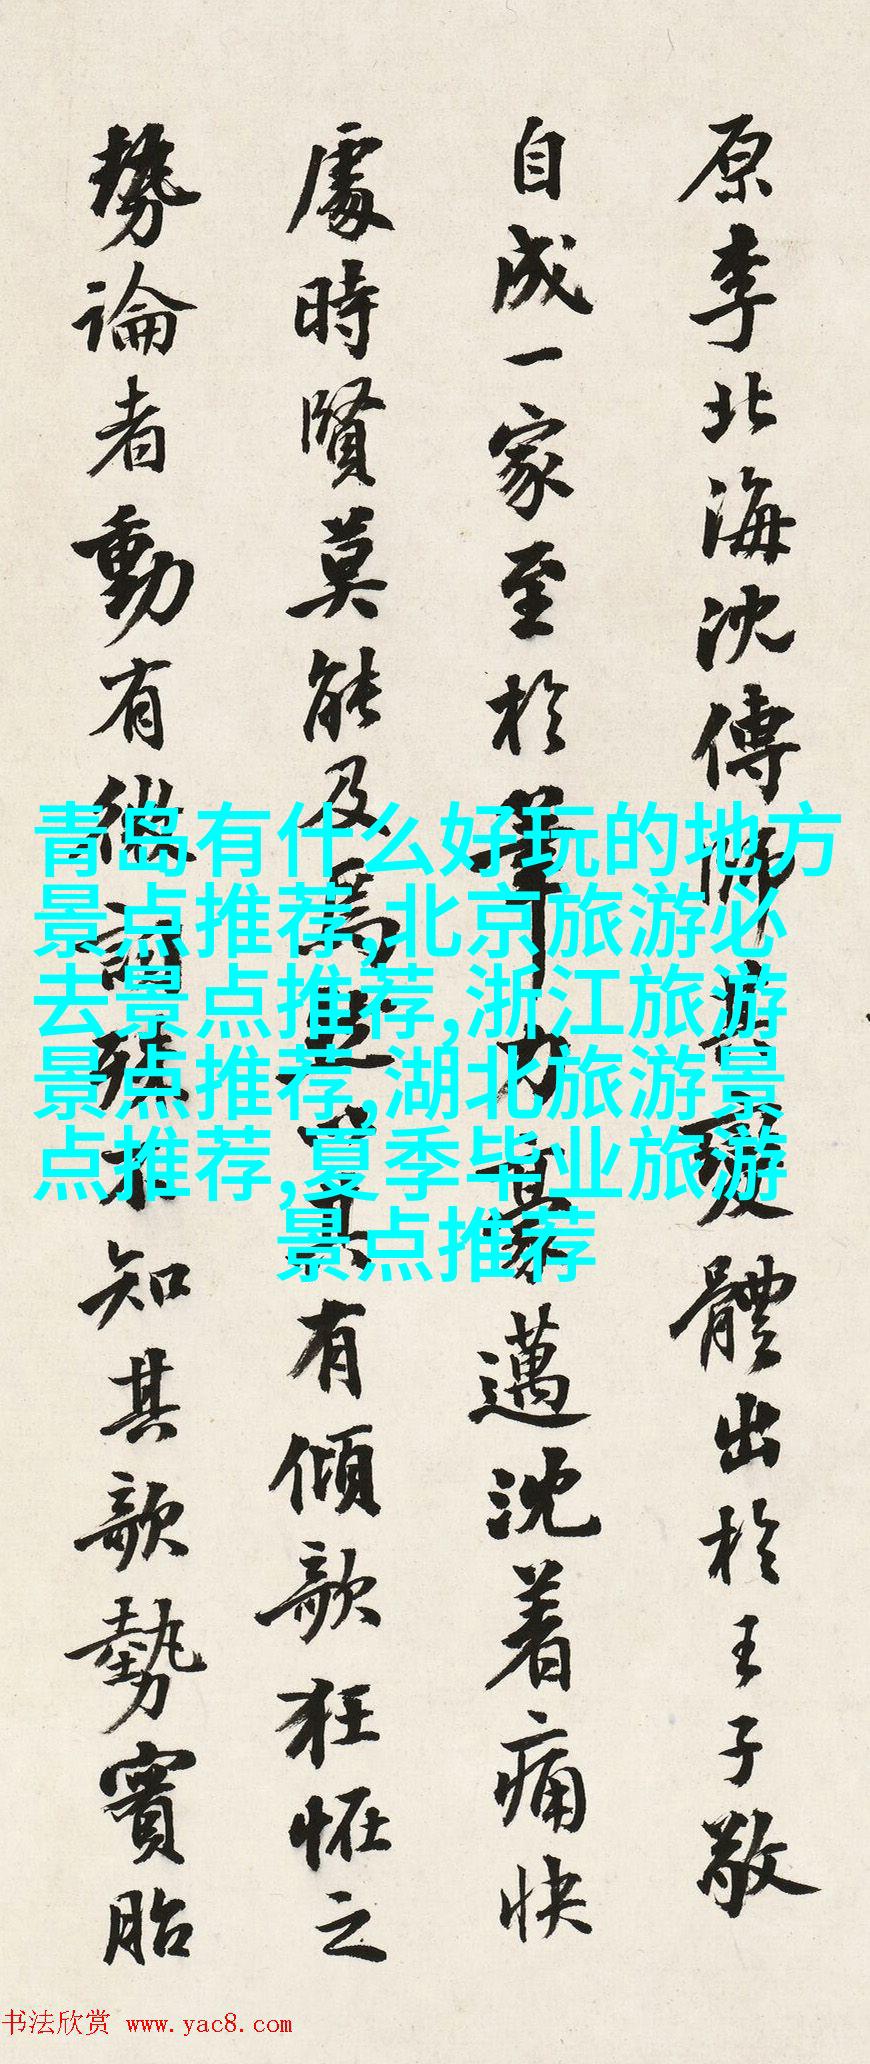 原李北海沈傳師其變體出於王子敬
自成一家至於筆力豪邁沈着痛快
處時賢莫能及焉然其有傾欹狂怪之
勢論者動有微詞殊不知其欹勢實胎
青岛有什么好玩的地方
景点推荐,北京旅游必
去景点推荐,浙江旅游
景点推荐,湖北旅游景
点推荐,夏季毕业旅游
景点推荐
书法欣赏 www.yac8.com